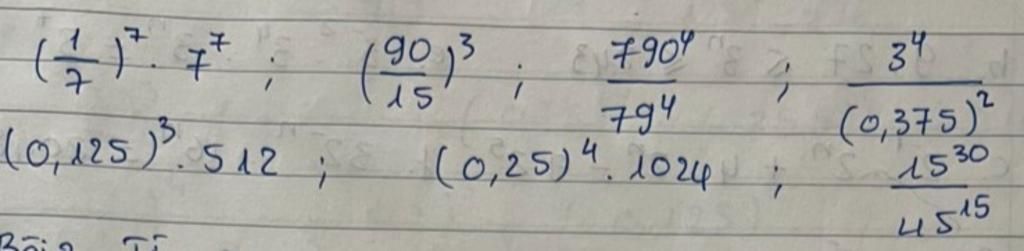 (1/7)^7 . 7^7 ; (90/15)^3 ; 790^4/79^4 ; 3^4/(0,375)^2
(0,125)^3 . 512 ; (0,25)^4 . 1024 ; 15^30/45^15